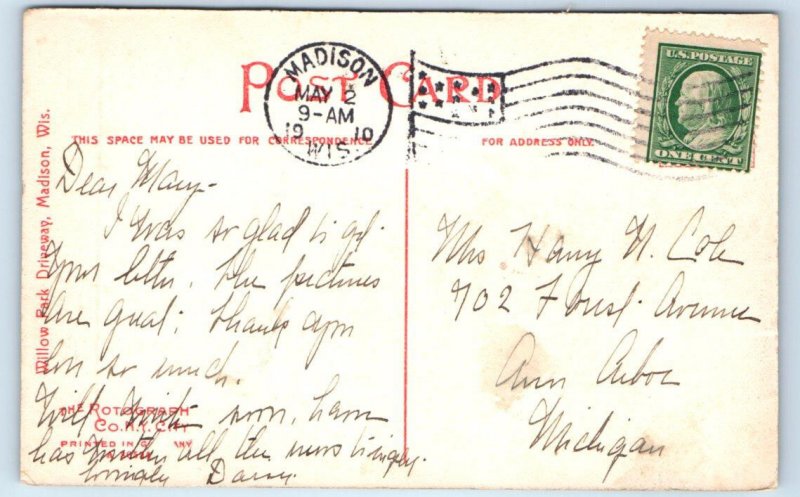 POST CARD
MADISON
MAY 2
9-AM
1910
WIS.
U.S. POSTAGE
ONE CENT
THIS SPACE MAY BE USED FOR CORRESPONDENCE
FOR ADDRESS ONLY.
Willow Park Driveway, Madison, Wis.
Dear Mary-
I was so glad to get
your letter. The pictures
are great; thank you
ever so much.
Will write soon,
has all the news
lovingly
THE ROTOGRAPH
CO. N.Y. CITY
PRINTED IN GERMANY
Mrs Harry N. Cole
702 Forest Avenue
Ann Arbor
Michigan